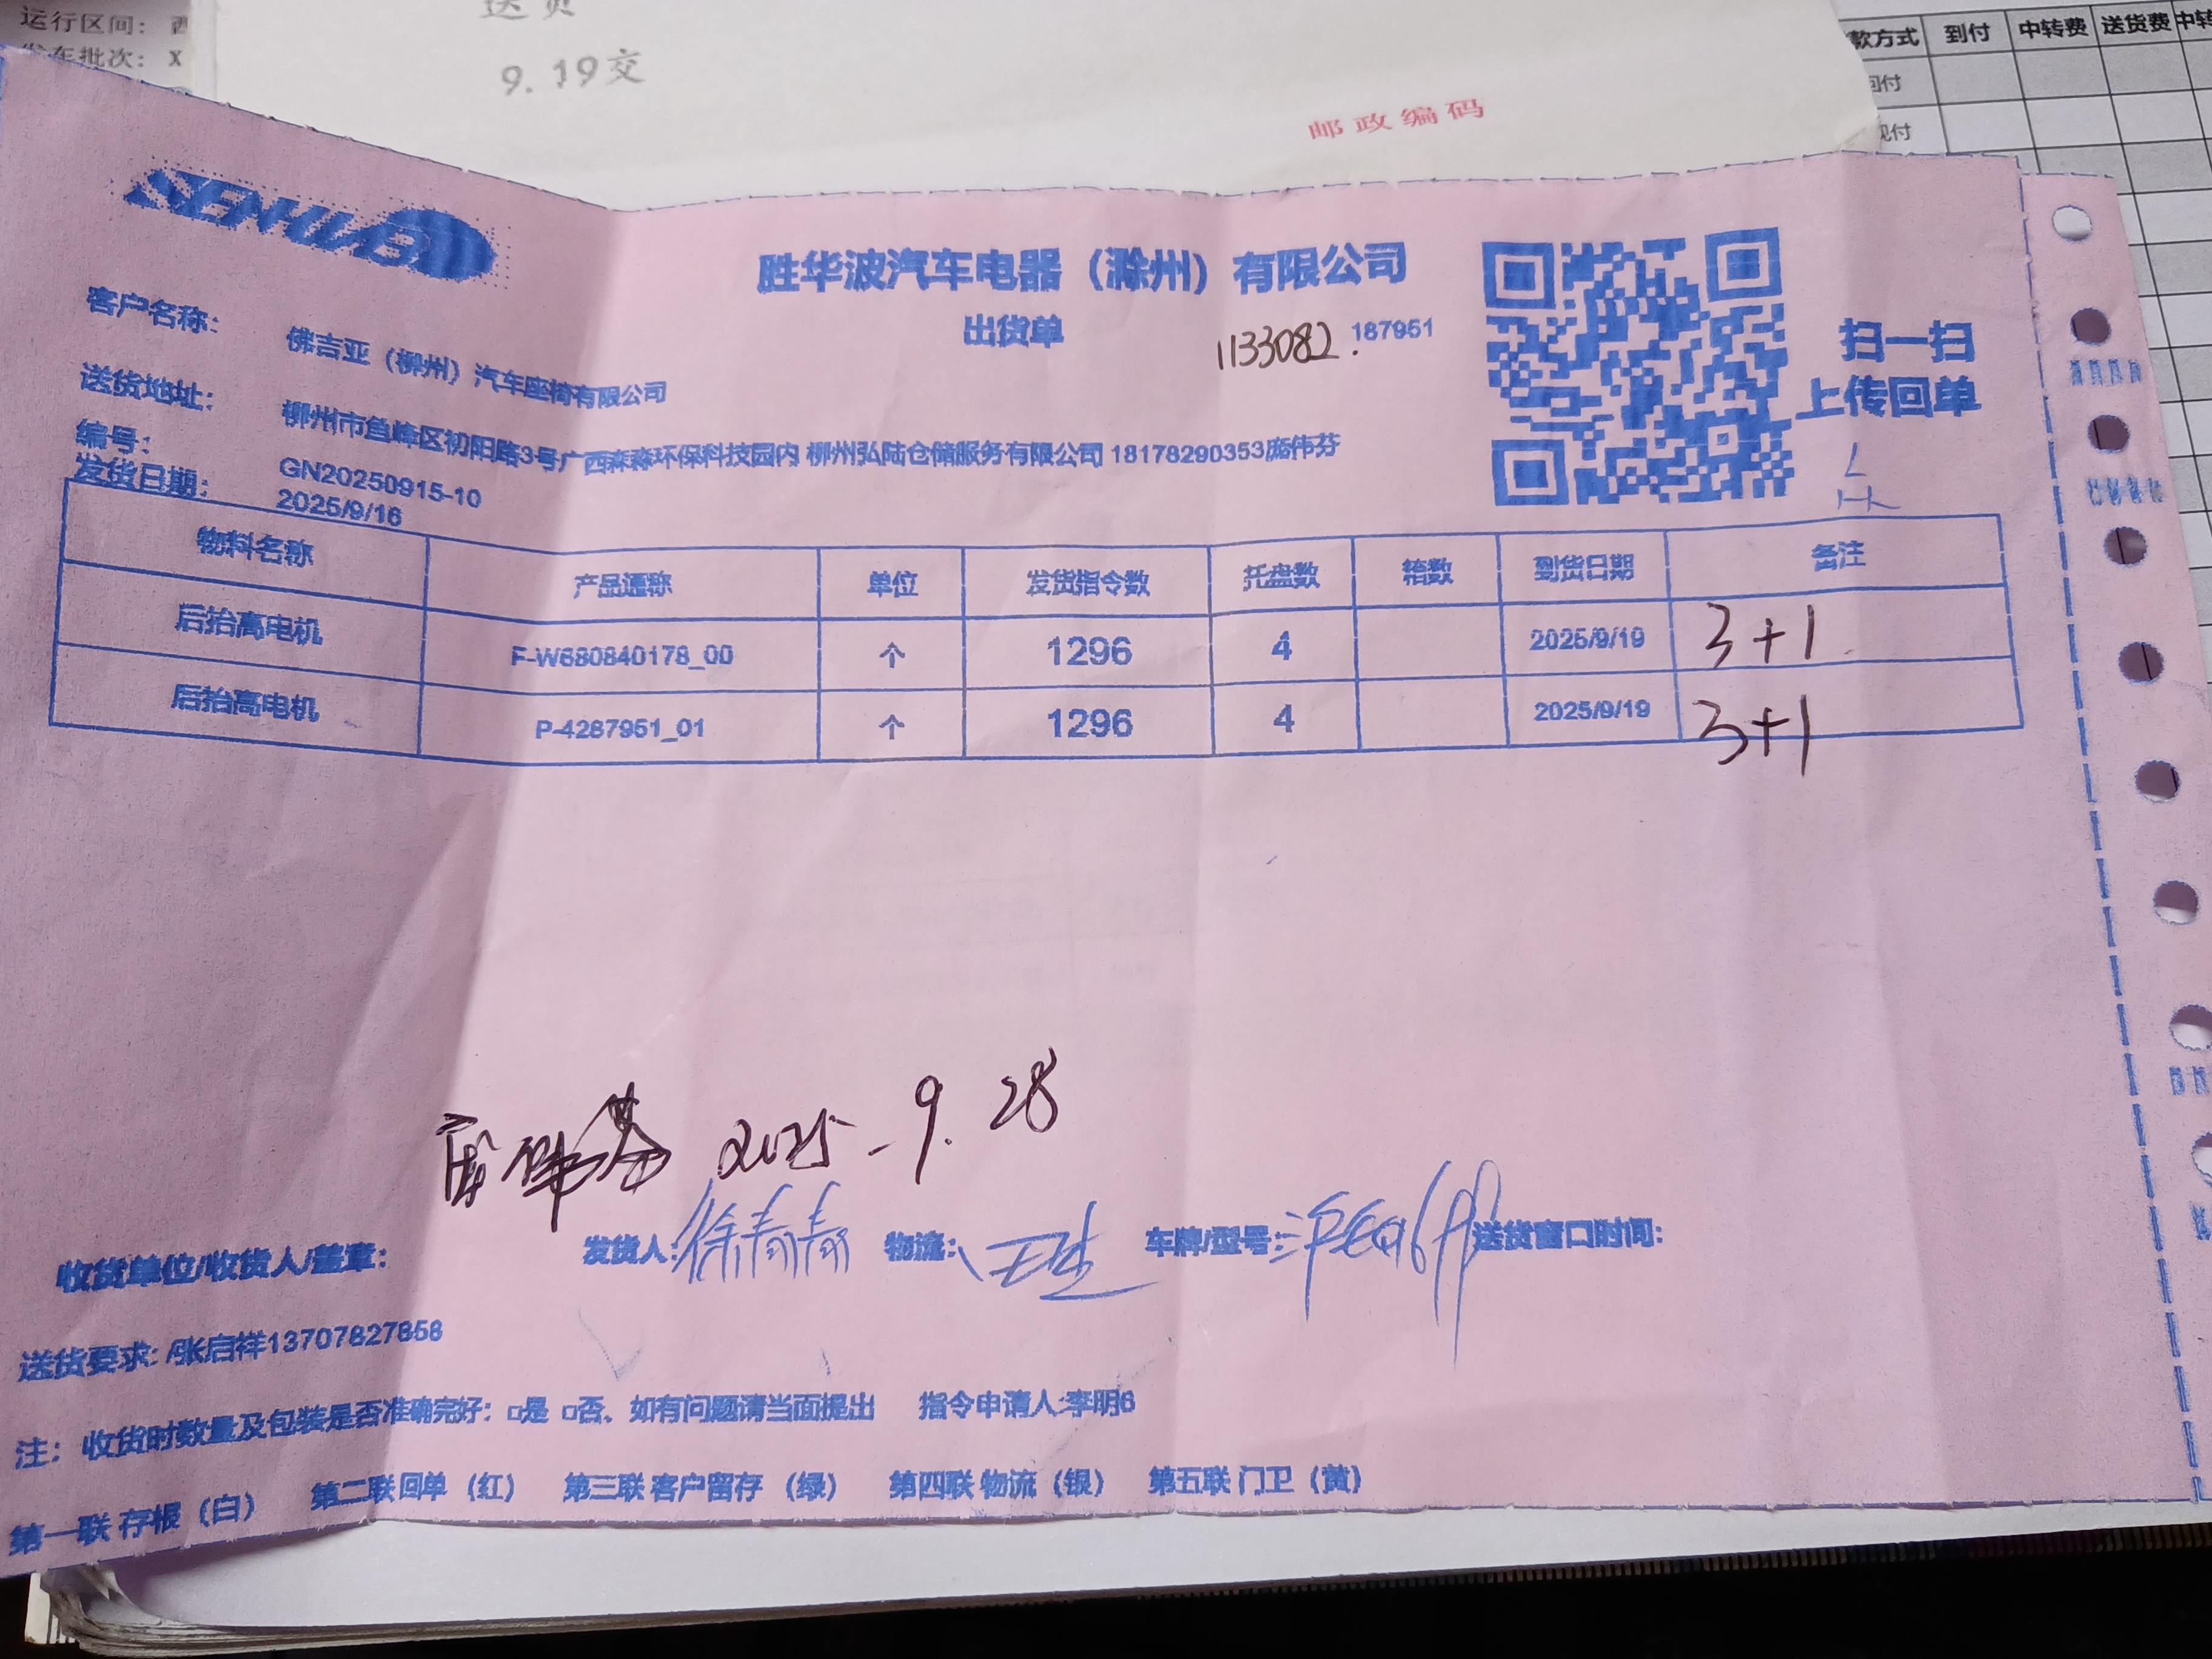 运行区间：
发车批次：X
送货
9.19交
邮政编码
款方式 到付 中转费 送货费 中转
回付
现付
SENHWABO
胜华波汽车电器（滁州）有限公司
出货单
1133082. 187951
扫一扫
上传回单
客户名称： 佛吉亚（柳州）汽车座椅有限公司
送货地址： 柳州市鱼峰区初阳路3号广西森淼环保科技园内 柳州弘陆仓储服务有限公司 18178290353庞伟芬
编号： GN20250915-10
发货日期： 2025/9/16
物料名称 产品通称 单位 发货指令数 托盘数 箱数 到货日期 备注
后抬高电机 F-W680840178_00 个 1296 4 2025/9/19 3+1
后抬高电机 P-4287951_01 个 1296 4 2025/9/19 3+1
2025.9.28
收货单位/收货人/盖章： 发货人：徐青青 物流： 车牌/型号： 送货窗口时间：
送货要求：/张启祥13707827858
注： 收货时数量及包装是否准确完好：□是 □否、如有问题请当面提出 指令申请人:李明6
第一联 存根（白） 第二联 回单（红） 第三联 客户留存（绿） 第四联 物流（银） 第五联 门卫（黄）